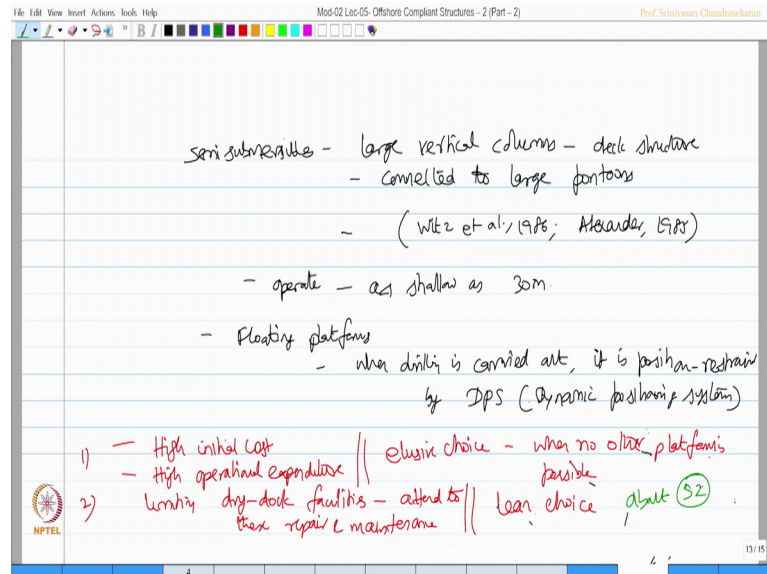 File Edit View Insert Actions Tools Help
Mod-02 Lec-05- Offshore Compliant Structures – 2 (Part – 2)
Prof. Srinivasan Chandrasekaran
B I
semisubmersibles - large vertical columns - deck structure
- connected to large pontoons
- (Witz et al., 1986; Alexander, 1985)
- operate - as shallow as 30m.
- Floating platforms
- when drilling is carried out, it is position-restrained
by DPS (Dynamic positioning system)
1) - High initial cost
- High operational expenditure
elusive choice - when no other platform is
possible
2) limiting dry-dock facilities - attend to
these repair & maintenance
lean choice about 52
NPTEL
13/15